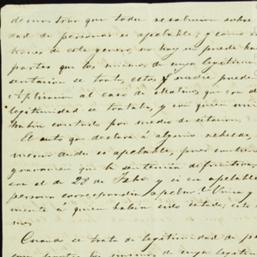 demostrar que toda resolucion sobre
dad de personas es apelable; y como
tiones de este genero no hay ni puede ha
partes que las mismas de cuya legitim
sentacion se trata, estas y nadie pueden
Aplicando al caso de
legitimidad se trataba, y con quien
habia contado por medio de citacion.
El auto que declara á alguno rebelde,
menor duda es apelable, pues contiene
gravamen que la sentencia definitiva
con el de 28 de Febo y si es apelable
persona correspondia apelar?
mente á quien habia sido citado, este
Cuando se trata de legitimidad de pe
son partes los mismos de cuya legitim